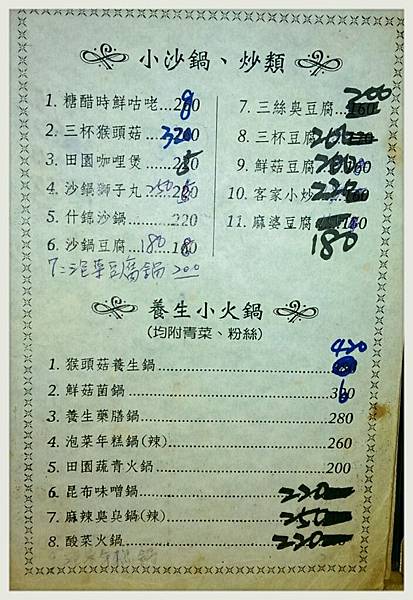 小沙鍋、炒類
1. 糖醋時鮮咕咾...280
2. 三杯猴頭菇...320
3. 田園咖哩煲
4. 沙鍋獅子丸 250
5. 什錦沙鍋............220
6. 沙鍋豆腐 180
7. 泡菜豆腐鍋 200
7. 三絲臭豆腐 200
8. 三杯豆腐 200
9. 鮮菇豆腐 200
10. 客家小炒 220
11. 麻婆豆腐 180
養生小火鍋
(均附青菜、粉絲)
1. 猴頭菇養生鍋 420
2. 鮮菇菌鍋
3. 養生藥膳鍋 280
4. 泡菜年糕鍋(辣) 260
5. 田園蔬青火鍋 200
6. 昆布味噌鍋 220
7. 麻辣臭臭鍋(辣) 250
8. 酸菜火鍋 220